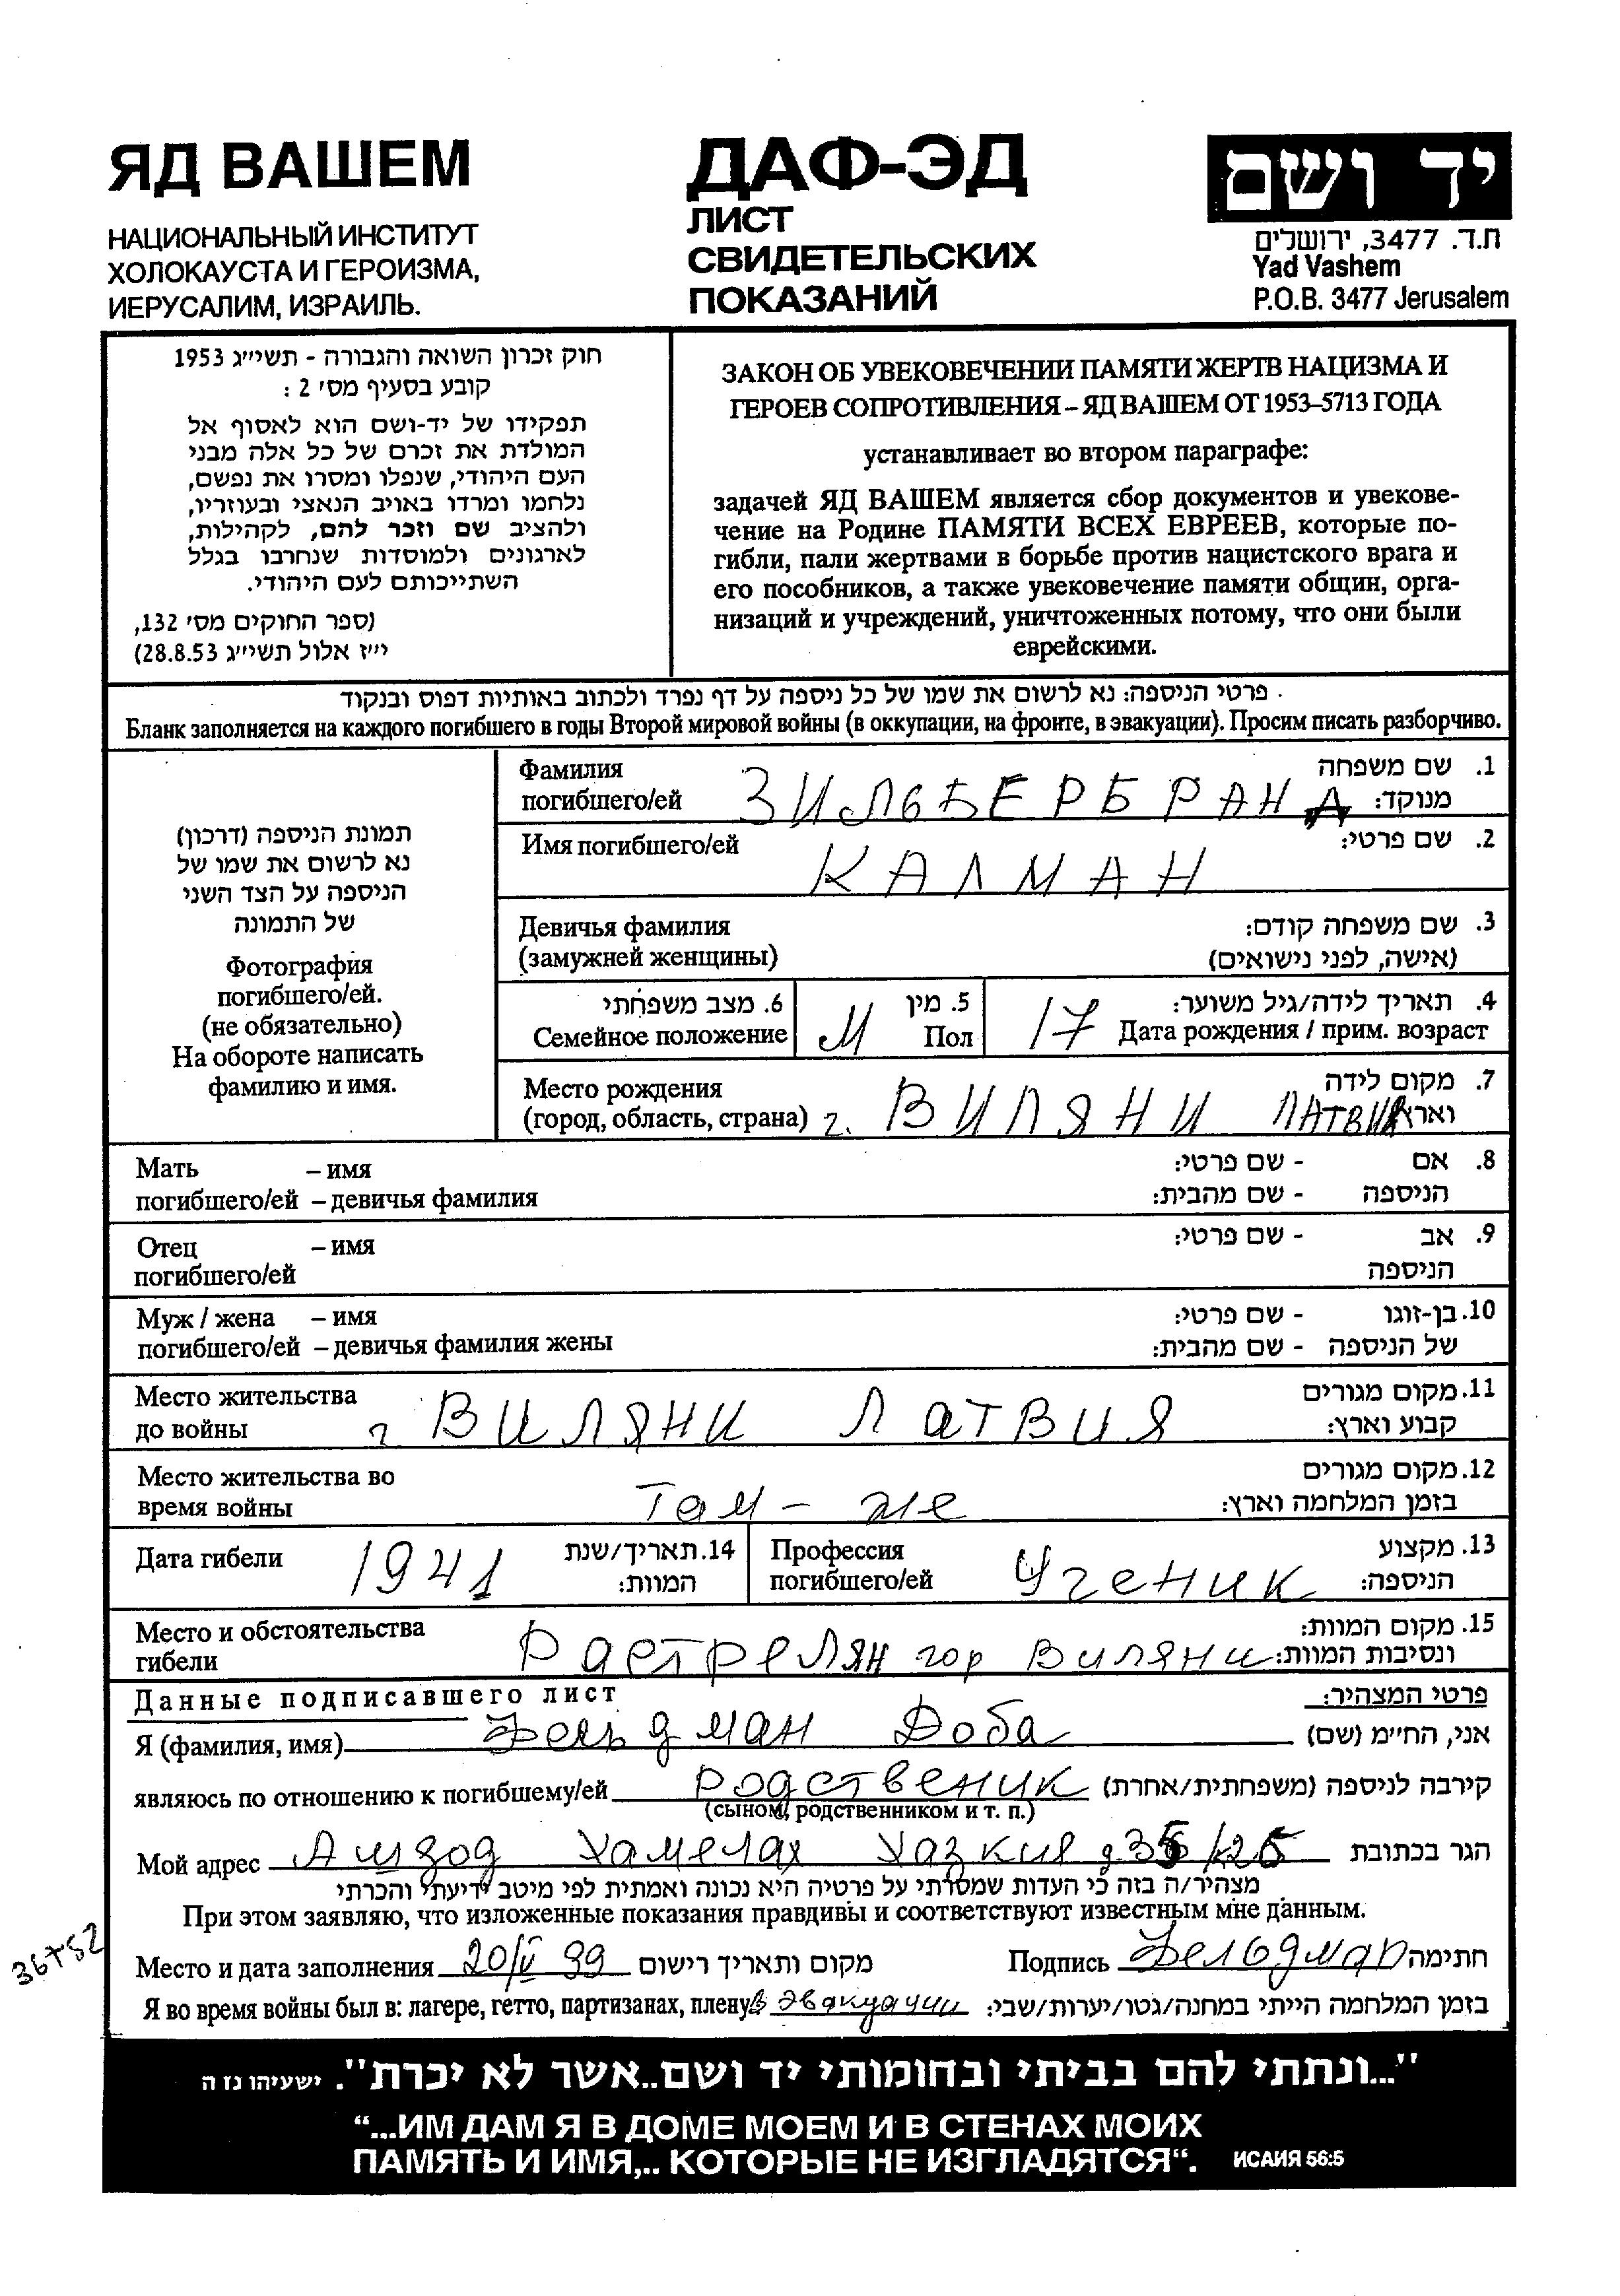 ЯД ВАШЕМ
НАЦИОНАЛЬНЫЙ ИНСТИТУТ
ХОЛОКАУСТА И ГЕРОИЗМА,
ИЕРУСАЛИМ, ИЗРАИЛЬ.
ДАФ-ЭД
ЛИСТ
СВИДЕТЕЛЬСКИХ
ПОКАЗАНИЙ
יד ושם
ת.ד. 3477, ירושלים
Yad Vashem
P.O.B. 3477 Jerusalem
חוק זכרון השואה והגבורה - תשי״ג 1953
קובע בסעיף מס׳ 2 :
תפקידו של יד-ושם הוא לאסוף אל
המולדת את זכרם של כל אלה מבני
העם היהודי, שנפלו ומסרו את נפשם,
נלחמו ומרדו באויב הנאצי ובעוזריו,
ולהציב שם וזכר להם, לקהילות,
לארגונים ולמוסדות שנחרבו בגלל
השתייכותם לעם היהודי.
(ספר החוקים מס׳ 132,
י״ז אלול תשי״ג 28.8.53)
ЗАКОН ОБ УВЕКОВЕЧЕНИИ ПАМЯТИ ЖЕРТВ НАЦИЗМА И
ГЕРОЕВ СОПРОТИВЛЕНИЯ – ЯД ВАШЕМ ОТ 1953–5713 ГОДА
устанавливает во втором параграфе:
задачей ЯД ВАШЕМ является сбор документов и увекове-
чение на Родине ПАМЯТИ ВСЕХ ЕВРЕЕВ, которые по-
гибли, пали жертвами в борьбе против нацистского врага и
его пособников, а также увековечение памяти общин, орга-
низаций и учреждений, уничтоженных потому, что они были
еврейскими.
פרטי הניספה: נא לרשום את שמו של כל ניספה על דף נפרד ולכתוב באותיות דפוס ובנקוד
Бланк заполняется на каждого погибшего в годы Второй мировой войны (в оккупации, на фронте, в эвакуации). Просим писать разборчиво.
תמונת הניספה (דרכון)
נא לרשום את שמו של
הניספה על הצד השני
של התמונה
Фотография
погибшего/ей.
(не обязательно)
На обороте написать
фамилию и имя.
Фамилия 1. שם משפחה
погибшего/ей ЗИЛЬБЕРБРАНД מנוקד:
Имя погибшего/ей КАЛМАН 2. שם פרטי:
Девичья фамилия 3. שם משפחה קודם:
(замужней женщины) (אישה, לפני נישואים)
6. מצב משפחתי 5. מין 4. תאריך לידה/גיל משוער:
Семейное положение М Пол 17 Дата рождения / прим. возраст
Место рождения 7. מקום לידה
(город, область, страна) г. ВИЛЯНИ ЛАТВИЯ וארץ
Мать – имя 8. אם - שם פרטי:
погибшего/ей – девичья фамилия הניספה - שם מהבית:
Отец – имя 9. אב - שם פרטי:
погибшего/ей הניספה
Муж / жена – имя 10. בן-זוגו - שם פרטי:
погибшего/ей – девичья фамилия жены של הניספה - שם מהבית:
Место жительства 11. מקום מגורים
до войны г ВИЛЯНИ ЛАТВИЯ קבוע וארץ:
Место жительства во 12. מקום מגורים
время войны Там - же בזמן המלחמה וארץ:
Дата гибели 1941 14. תאריך/שנת המוות:
Профессия 13. מקצוע
погибшего/ей Ученик הניספה:
Место и обстоятельства 15. מקום המוות:
гибели Растрелян гор Виляни ונסיבות המוות:
Данные подписавшего лист פרטי המצהיר:
Я (фамилия, имя) Фельдман Доба אני, הח״מ (שם)
являюсь по отношению к погибшему/ей Родственик קירבה לניספה (משפחתית/אחרת)
(сыном, родственником и т. п.)
Мой адрес Ашдод Хамелах Хазкия д. /25 הגר בכתובת
מצהיר/ה בזה כי העדות שמסרתי על פרטיה היא נכונה ואמתית לפי מיטב ידיעתי והכרתי
При этом заявляю, что изложенные показания правдивы и соответствуют известным мне данным.
Место и дата заполнения 20/V 99 מקום ותאריך רישום Подпись Фельдман חתימה
Я во время войны был в: лагере, гетто, партизанах, плену в эвакуации בזמן המלחמה הייתי במחנה/גטו/יערות/שבי:
"...ונתתי להם בביתי ובחומותי יד ושם..אשר לא יכרת". ישעיהו נז ה
“...ИМ ДАМ Я В ДОМЕ МОЕМ И В СТЕНАХ МОИХ
ПАМЯТЬ И ИМЯ,.. КОТОРЫЕ НЕ ИЗГЛАДЯТСЯ“. ИСАИЯ 56:5